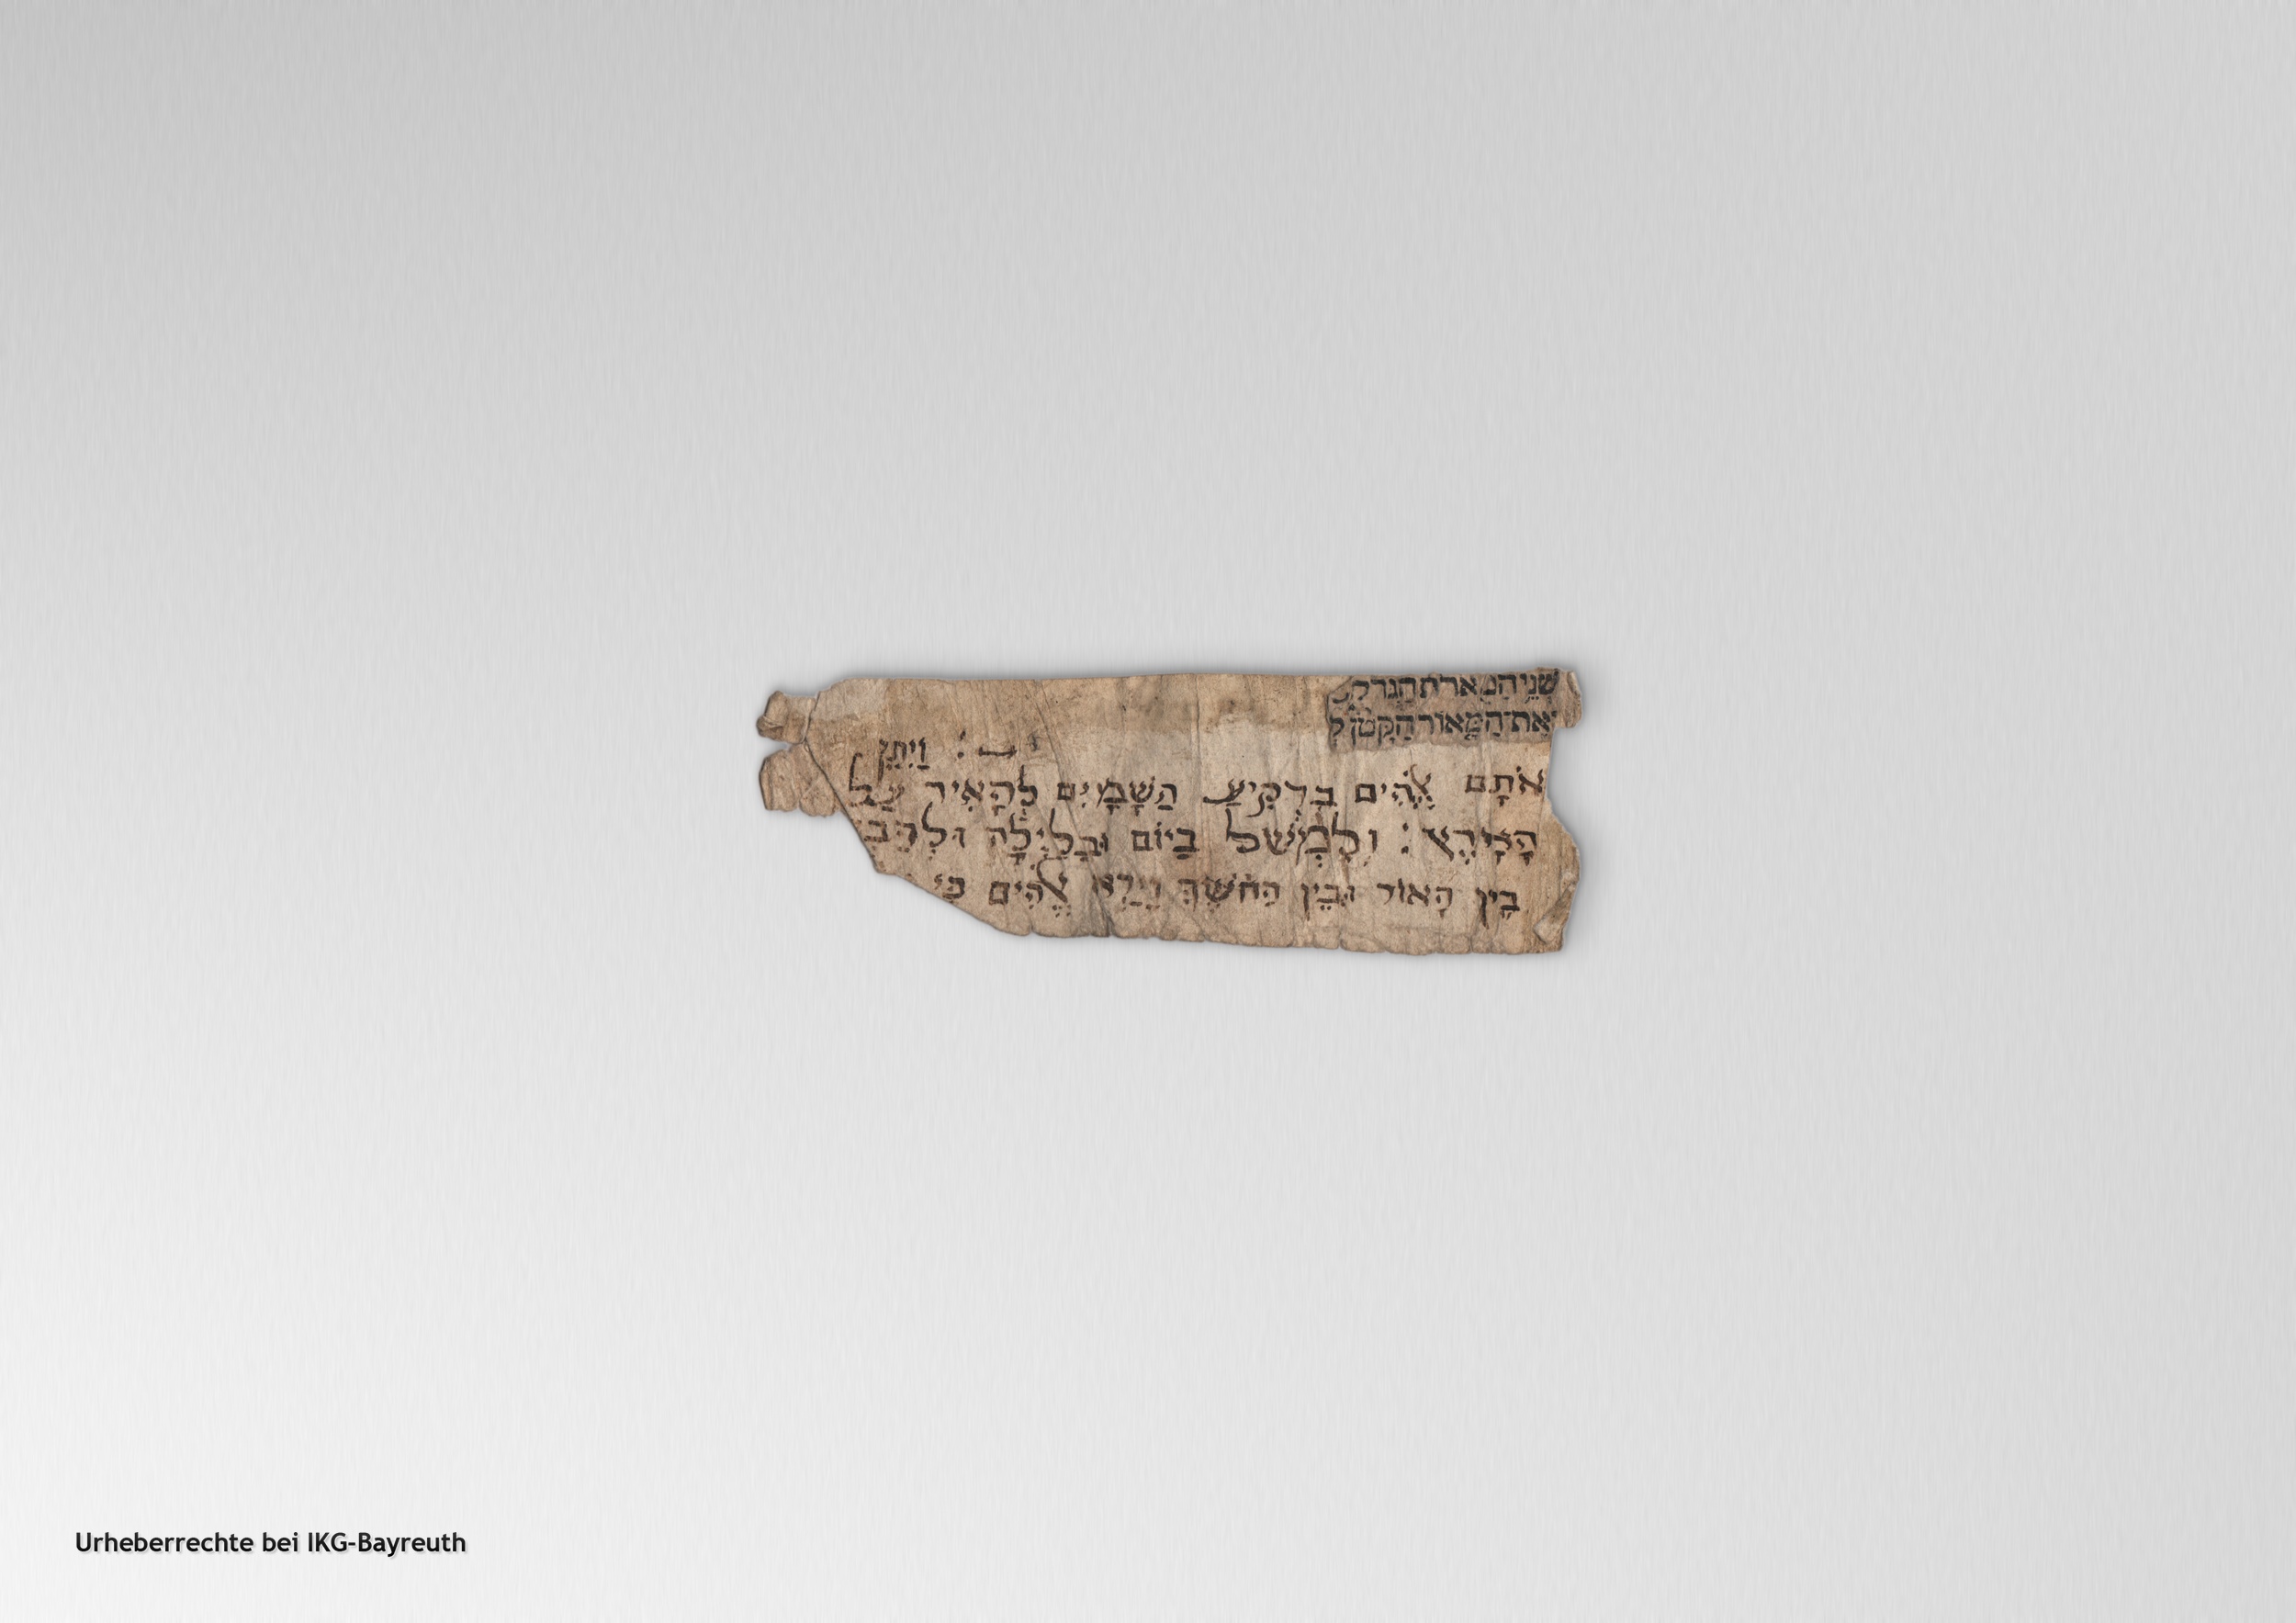 שְׁנֵי הַמְּאֹרֹת הַגְּדֹלִ
אֶת־הַמָּאוֹר הַקָּטֹן לְ
: וַיִּתֵּן
אֹתָם אֱלֹהִים בִּרְקִיעַ הַשָּׁמָיִם לְהָאִיר עַל
הָאָרֶץ : וְלִמְשֹׁל בַּיּוֹם וּבַלַּיְלָה וּלְהַבְ
בֵּין הָאוֹר וּבֵין הַחֹשֶׁךְ וַיַּרְא אֱלֹהִים כִּי
Urheberrechte bei IKG-Bayreuth